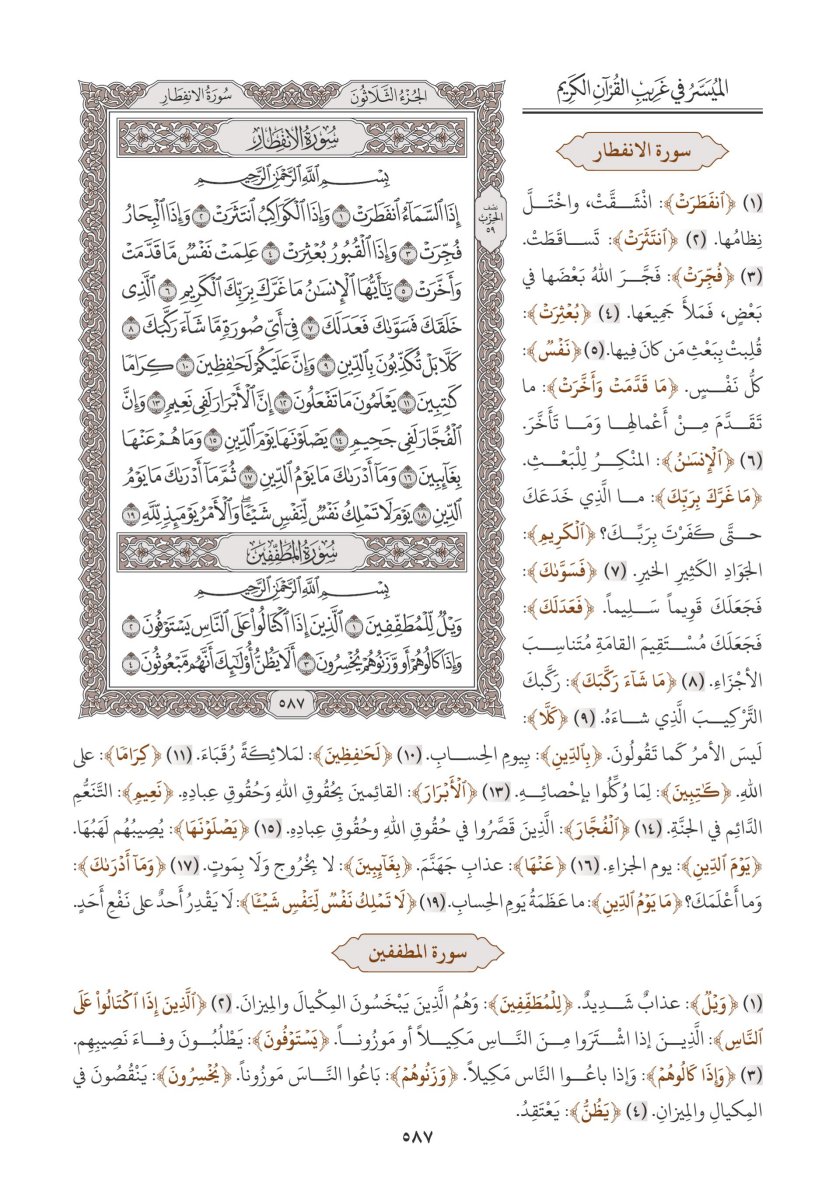 الميسر في غريب القرآن الكريم
الجُزْءُ الثَّلَاثُونَ
سُورَةُ الانفِطَار
سُورَةُ الانفِطَار
بِسْمِ اللَّهِ الرَّحْمَٰنِ الرَّحِيمِ
إِذَا ٱلسَّمَآءُ ٱنفَطَرَتْ ١ وَإِذَا ٱلْكَوَاكِبُ ٱنتَثَرَتْ ٢ وَإِذَا ٱلْبِحَارُ
فُجِّرَتْ ٣ وَإِذَا ٱلْقُبُورُ بُعْثِرَتْ ٤ عَلِمَتْ نَفْسٌ مَّا قَدَّمَتْ
وَأَخَّرَتْ ٥ يَٰٓأَيُّهَا ٱلْإِنسَٰنُ مَا غَرَّكَ بِرَبِّكَ ٱلْكَرِيمِ ٦ ٱلَّذِى
خَلَقَكَ فَسَوَّىٰكَ فَعَدَلَكَ ٧ فِىٓ أَىِّ صُورَةٍ مَّا شَآءَ رَكَّبَكَ ٨
كَلَّا بَلْ تُكَذِّبُونَ بِٱلدِّينِ ٩ وَإِنَّ عَلَيْكُمْ لَحَٰفِظِينَ ١٠ كِرَامًا
كَٰتِبِينَ ١١ يَعْلَمُونَ مَا تَفْعَلُونَ ١٢ إِنَّ ٱلْأَبْرَارَ لَفِى نَعِيمٍ ١٣ وَإِنَّ
ٱلْفُجَّارَ لَفِى جَحِيمٍ ١٤ يَصْلَوْنَهَا يَوْمَ ٱلدِّينِ ١٥ وَمَا هُمْ عَنْهَا
بِغَآئِبِينَ ١٦ وَمَآ أَدْرَىٰكَ مَا يَوْمُ ٱلدِّينِ ١٧ ثُمَّ مَآ أَدْرَىٰكَ مَا يَوْمُ
ٱلدِّينِ ١٨ يَوْمَ لَا تَمْلِكُ نَفْسٌ لِّنَفْسٍ شَيْـًٔا ۖ وَٱلْأَمْرُ يَوْمَئِذٍ لِّلَّهِ ١٩
سُورَةُ المُطَفِّفِينَ
بِسْمِ اللَّهِ الرَّحْمَٰنِ الرَّحِيمِ
وَيْلٌ لِّلْمُطَفِّفِينَ ١ ٱلَّذِينَ إِذَا ٱكْتَالُوا۟ عَلَى ٱلنَّاسِ يَسْتَوْفُونَ ٢
وَإِذَا كَالُوهُمْ أَو وَّزَنُوهُمْ يُخْسِرُونَ ٣ أَلَا يَظُنُّ أُو۟لَٰٓئِكَ أَنَّهُم مَّبْعُوثُونَ ٤
٥٨٧
نصف
الحزب
٥٩
سورة الانفطار
(١) ﴿ٱنفَطَرَتْ﴾: انْشَقَّتْ، واخْتَلَّ
نِظامُها. (٢) ﴿ٱنتَثَرَتْ﴾: تَساقَطَتْ.
(٣) ﴿فُجِّرَتْ﴾: فَجَّرَ اللهُ بَعْضَها في
بَعْضٍ، فَمَلأَ جَمِيعَها. (٤) ﴿بُعْثِرَتْ﴾:
قُلِبتْ بِبَعْثِ مَن كانَ فِيها. (٥) ﴿نَفْسٌ﴾:
كلُّ نَفْسٍ. ﴿مَا قَدَّمَتْ وَأَخَّرَتْ﴾: ما
تَقَدَّمَ مِنْ أَعْمالِها وَمَا تَأَخَّرَ.
(٦) ﴿ٱلْإِنسَٰنُ﴾: المنْكِرُ لِلْبَعْثِ.
﴿مَا غَرَّكَ بِرَبِّكَ﴾: ما الَّذِي خَدَعَكَ
حتَّى كَفَرْتَ بِرَبِّكَ؟ ﴿ٱلْكَرِيمِ﴾:
الجَوَادِ الكَثِيرِ الخيرِ. (٧) ﴿فَسَوَّىٰكَ﴾:
فَجَعَلَكَ قَوِيماً سَلِيماً. ﴿فَعَدَلَكَ﴾:
فَجَعَلَكَ مُسْتَقِيمَ القامَةِ مُتَناسِبَ
الأجْزَاءِ. (٨) ﴿مَا شَآءَ رَكَّبَكَ﴾: رَكَّبكَ
التَّرْكِيبَ الَّذِي شاءَهُ. (٩) ﴿كَلَّا﴾:
لَيسَ الأمرُ كَما تَقُولُونَ. ﴿بِٱلدِّينِ﴾: بِيومِ الحِسابِ. (١٠) ﴿لَحَٰفِظِينَ﴾: لمَلائِكَةً رُقَبَاءَ. (١١) ﴿كِرَامًا﴾: على
اللهِ. ﴿كَٰتِبِينَ﴾: لِمَا وُكِّلُوا بإحْصائِهِ. (١٣) ﴿ٱلْأَبْرَارَ﴾: القائِمينَ بِحُقُوقِ اللهِ وَحُقُوقِ عِبادِهِ. ﴿نَعِيمٍ﴾: التَّنَعُّمِ
الدَّائِمِ في الجنَّةِ. (١٤) ﴿ٱلْفُجَّارَ﴾: الَّذِينَ قَصَّرُوا في حُقُوقِ اللهِ وحُقُوقِ عِبادِهِ. (١٥) ﴿يَصْلَوْنَهَا﴾: يُصِيبُهُم لَهَبُهَا.
﴿يَوْمَ ٱلدِّينِ﴾: يوم الجزاءِ. (١٦) ﴿عَنْهَا﴾: عذابِ جَهَنَّمَ. ﴿بِغَآئِبِينَ﴾: لا بِخُروجٍ وَلَا بِمَوتٍ. (١٧) ﴿وَمَآ أَدْرَىٰكَ﴾:
وَما أَعْلَمَكَ؟ ﴿مَا يَوْمُ ٱلدِّينِ﴾: ما عَظَمَةُ يَومِ الحِسابِ. (١٩) ﴿لَا تَمْلِكُ نَفْسٌ لِّنَفْسٍ شَيْـًٔا﴾: لَا يَقْدِرُ أَحدٌ على نَفْعِ أَحَدٍ.
سورة المطففين
(١) ﴿وَيْلٌ﴾: عذابٌ شَدِيدٌ. ﴿لِّلْمُطَفِّفِينَ﴾: وَهُمُ الَّذِينَ يَبْخَسُونَ المِكْيالَ والمِيزانَ. (٢) ﴿ٱلَّذِينَ إِذَا ٱكْتَالُوا۟ عَلَى
ٱلنَّاسِ﴾: الَّذِينَ إذا اشْتَرَوا مِنَ النَّاسِ مَكِيلاً أو مَوزُوناً. ﴿يَسْتَوْفُونَ﴾: يَطْلُبُونَ وفاءَ نَصِيبِهِم.
(٣) ﴿وَإِذَا كَالُوهُمْ﴾: وَإذا باعُوا النَّاس مَكِيلاً. ﴿وَزَنُوهُمْ﴾: بَاعُوا النَّاسَ مَوزُوناً. ﴿يُخْسِرُونَ﴾: يَنْقُصُونَ في
المِكيالِ والمِيزانِ. (٤) ﴿يَظُنُّ﴾: يَعْتَقِدُ.
٥٨٧